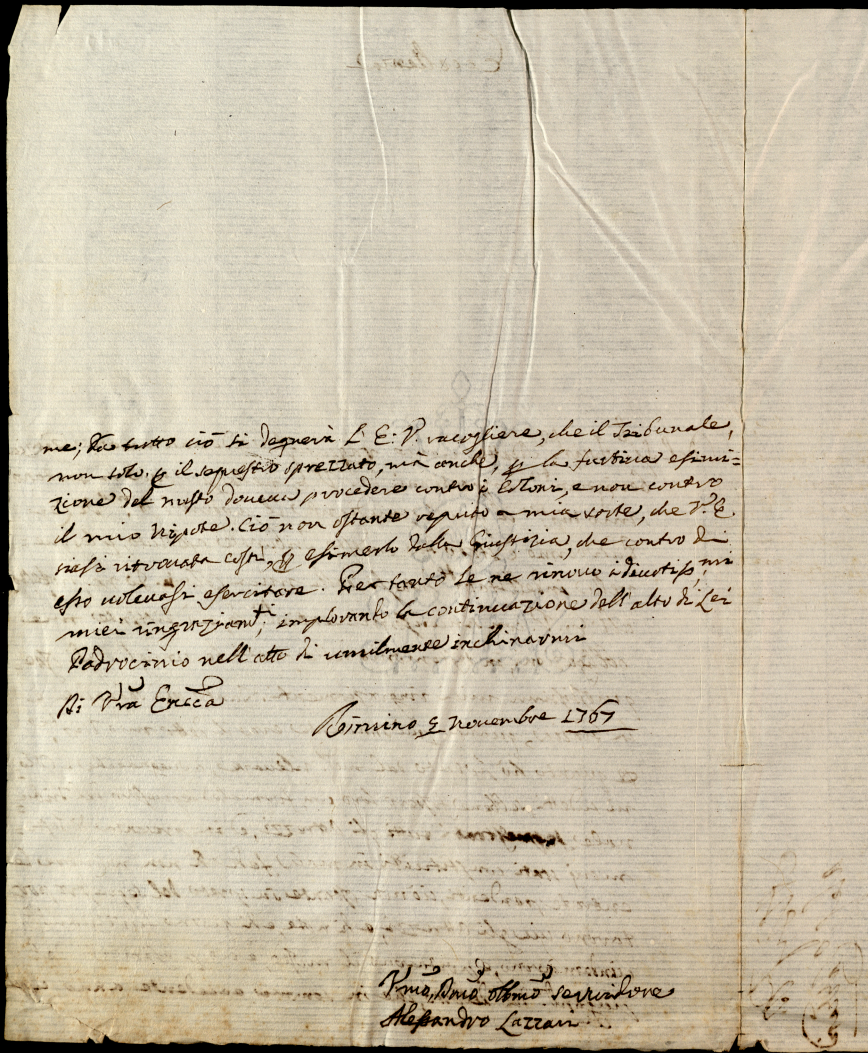 me; da tutto ciò si degnerà L' E: V. racogliere, che il Tribunale,
non solo p il sequestro sprezzato, mà anche, p la furtiva esimi=
zione del mosto doveva procedere contro i Coloni, e non contro
il mio Nipote. Ciò non ostante reputo a mia sorte, che V. E.
siasi ritrovata costì, p esimerlo dalla Giustizia, che contro di
esso volevasi esercitare. Per tanto le ne rinovo i divotiss.mi
miei ringraziam.ti, implorando la continuazione dell' alto di Lei
Padrocinio nell' atto di umilmente inchinarmi
Di Vra Eccza
Rimino 5 Novembre 1767
Umo, Dmo, Obbmo Servidore
Alessandro Lazzari